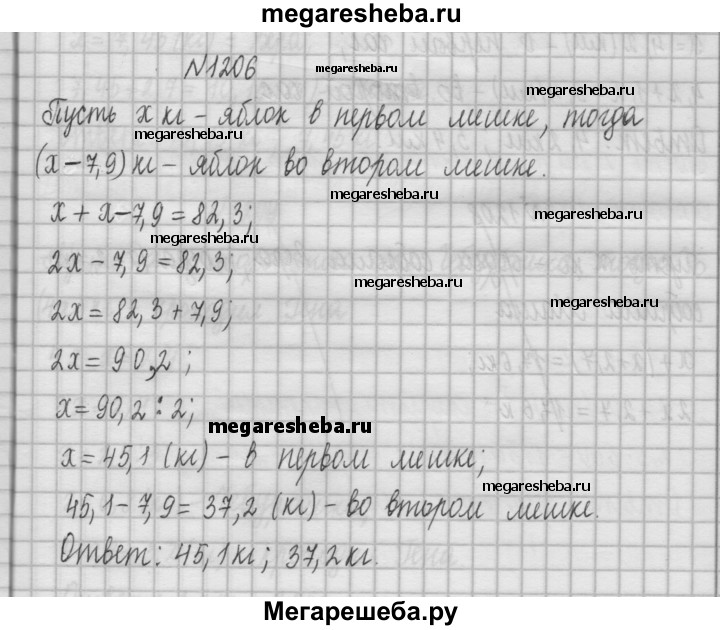 megaresheba.ru
N1206
megaresheba.ru
megaresheba.ru
Пусть x кг – яблок в первом мешке, тогда
megaresheba.ru
(x – 7,9) кг – яблок во втором мешке.
megaresheba.ru
x + x – 7,9 = 82,3;
megaresheba.ru
megaresheba.ru
2x – 7,9 = 82,3;
megaresheba.ru
2x = 82,3 + 7,9;
2x = 90,2;
x = 90,2 : 2;
megaresheba.ru
x = 45,1 (кг) – в первом мешке;
megaresheba.ru
45,1 – 7,9 = 37,2 (кг) – во втором мешке.
Ответ: 45,1 кг; 37,2 кг.
Мегарешеба.ру